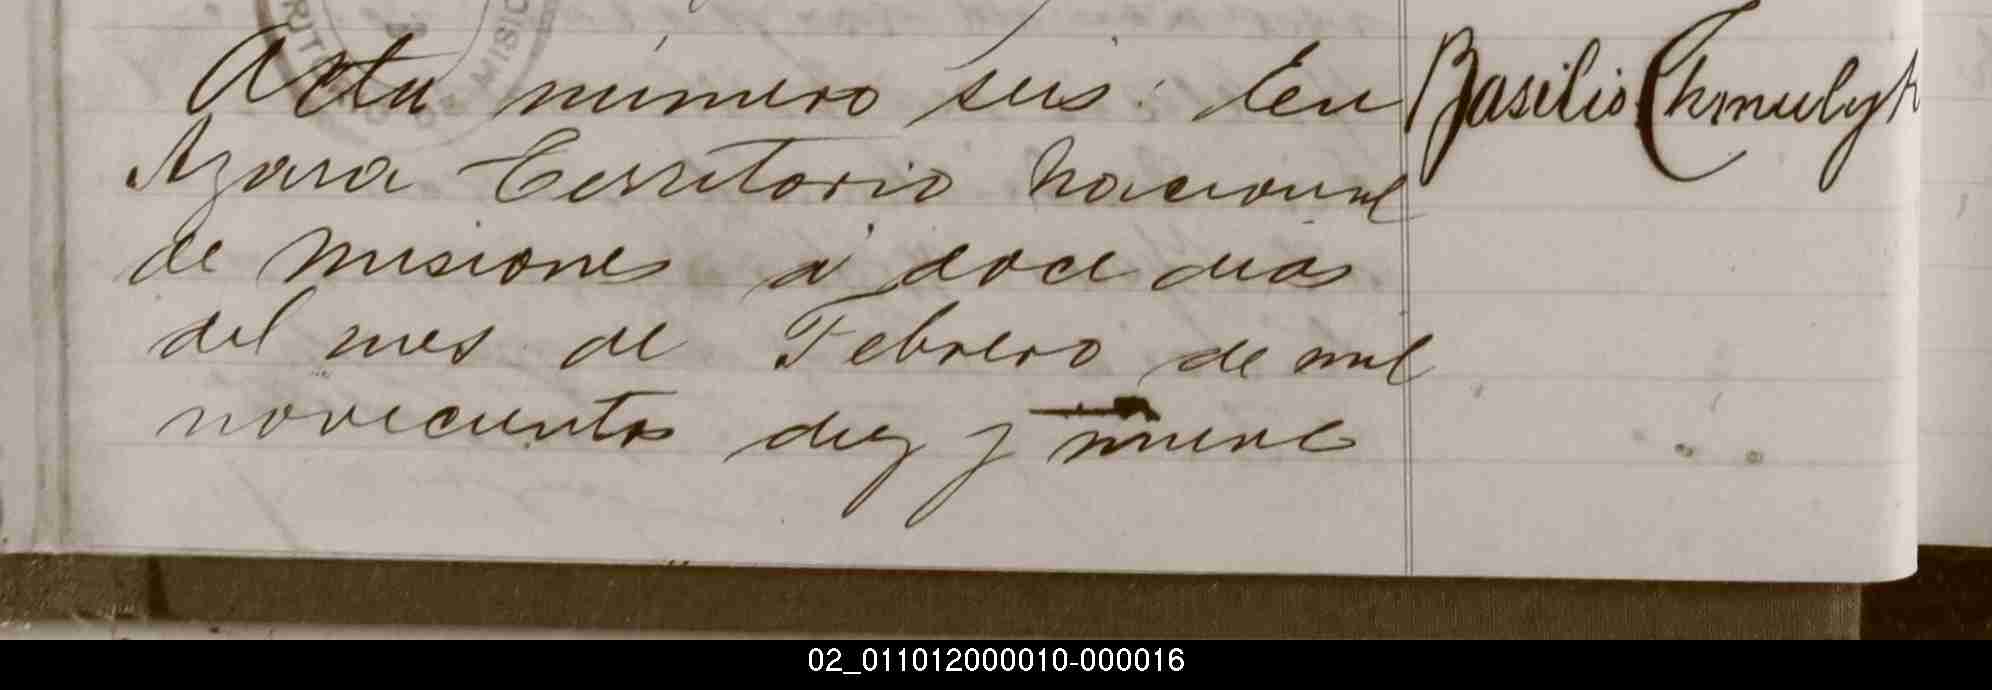 Acta número seis: En
Azara Territorio Nacional
de Misiones á doce dias
del mes de Febrero de mil
novecientos diez y nueve
Basilio Chmulyk
02_011012000010-000016